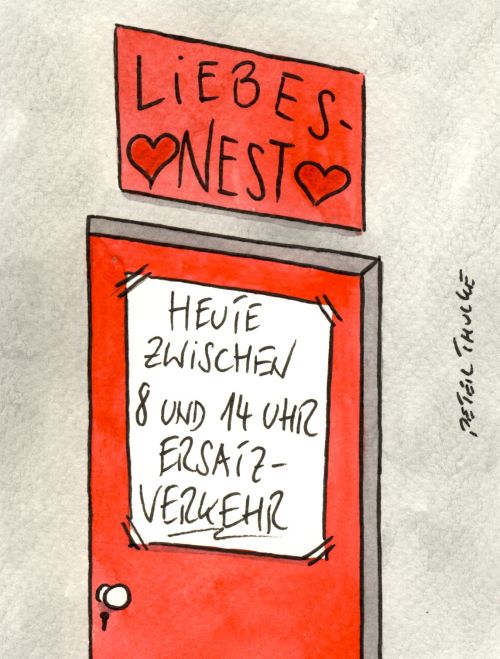 LiEBES-
NEST
HEUTE
ZWiSCHEN
8 UND 14 UHR
ERSATZ-
VERKEHR
PETER THULKE